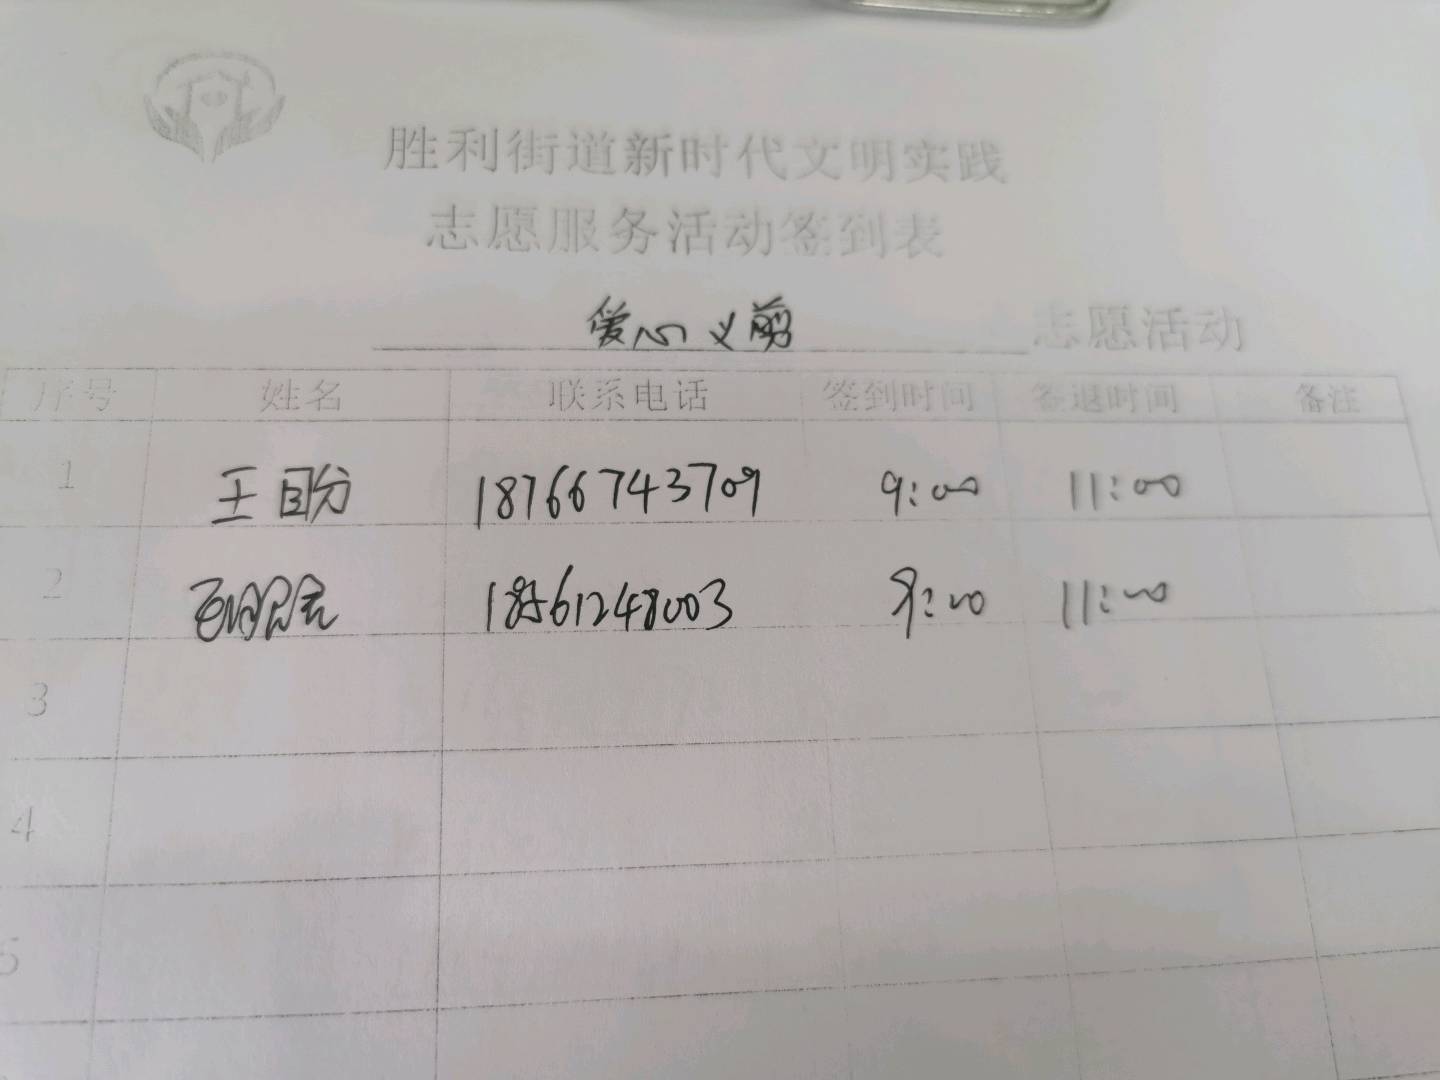 胜利街道新时代文明实践
志愿服务活动签到表
爱心义剪 志愿活动
序号 姓名 联系电话 签到时间 签退时间 备注
1 王盼 18766743709 9:00 11:00
2 18561248003 9:00 11:00
3
4
5